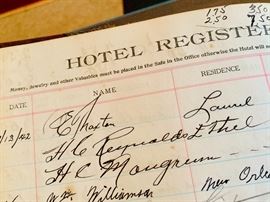 175 350
2.50 7.50
HOTEL REGISTER
Money, Jewelry and other Valuables must be placed in the Safe in the Office otherwise the Hotel will no
DATE NAME RESIDENCE
/13/42 Laurel
H C Reynolds Ethel
H C Mangrum
Williamson New Orle